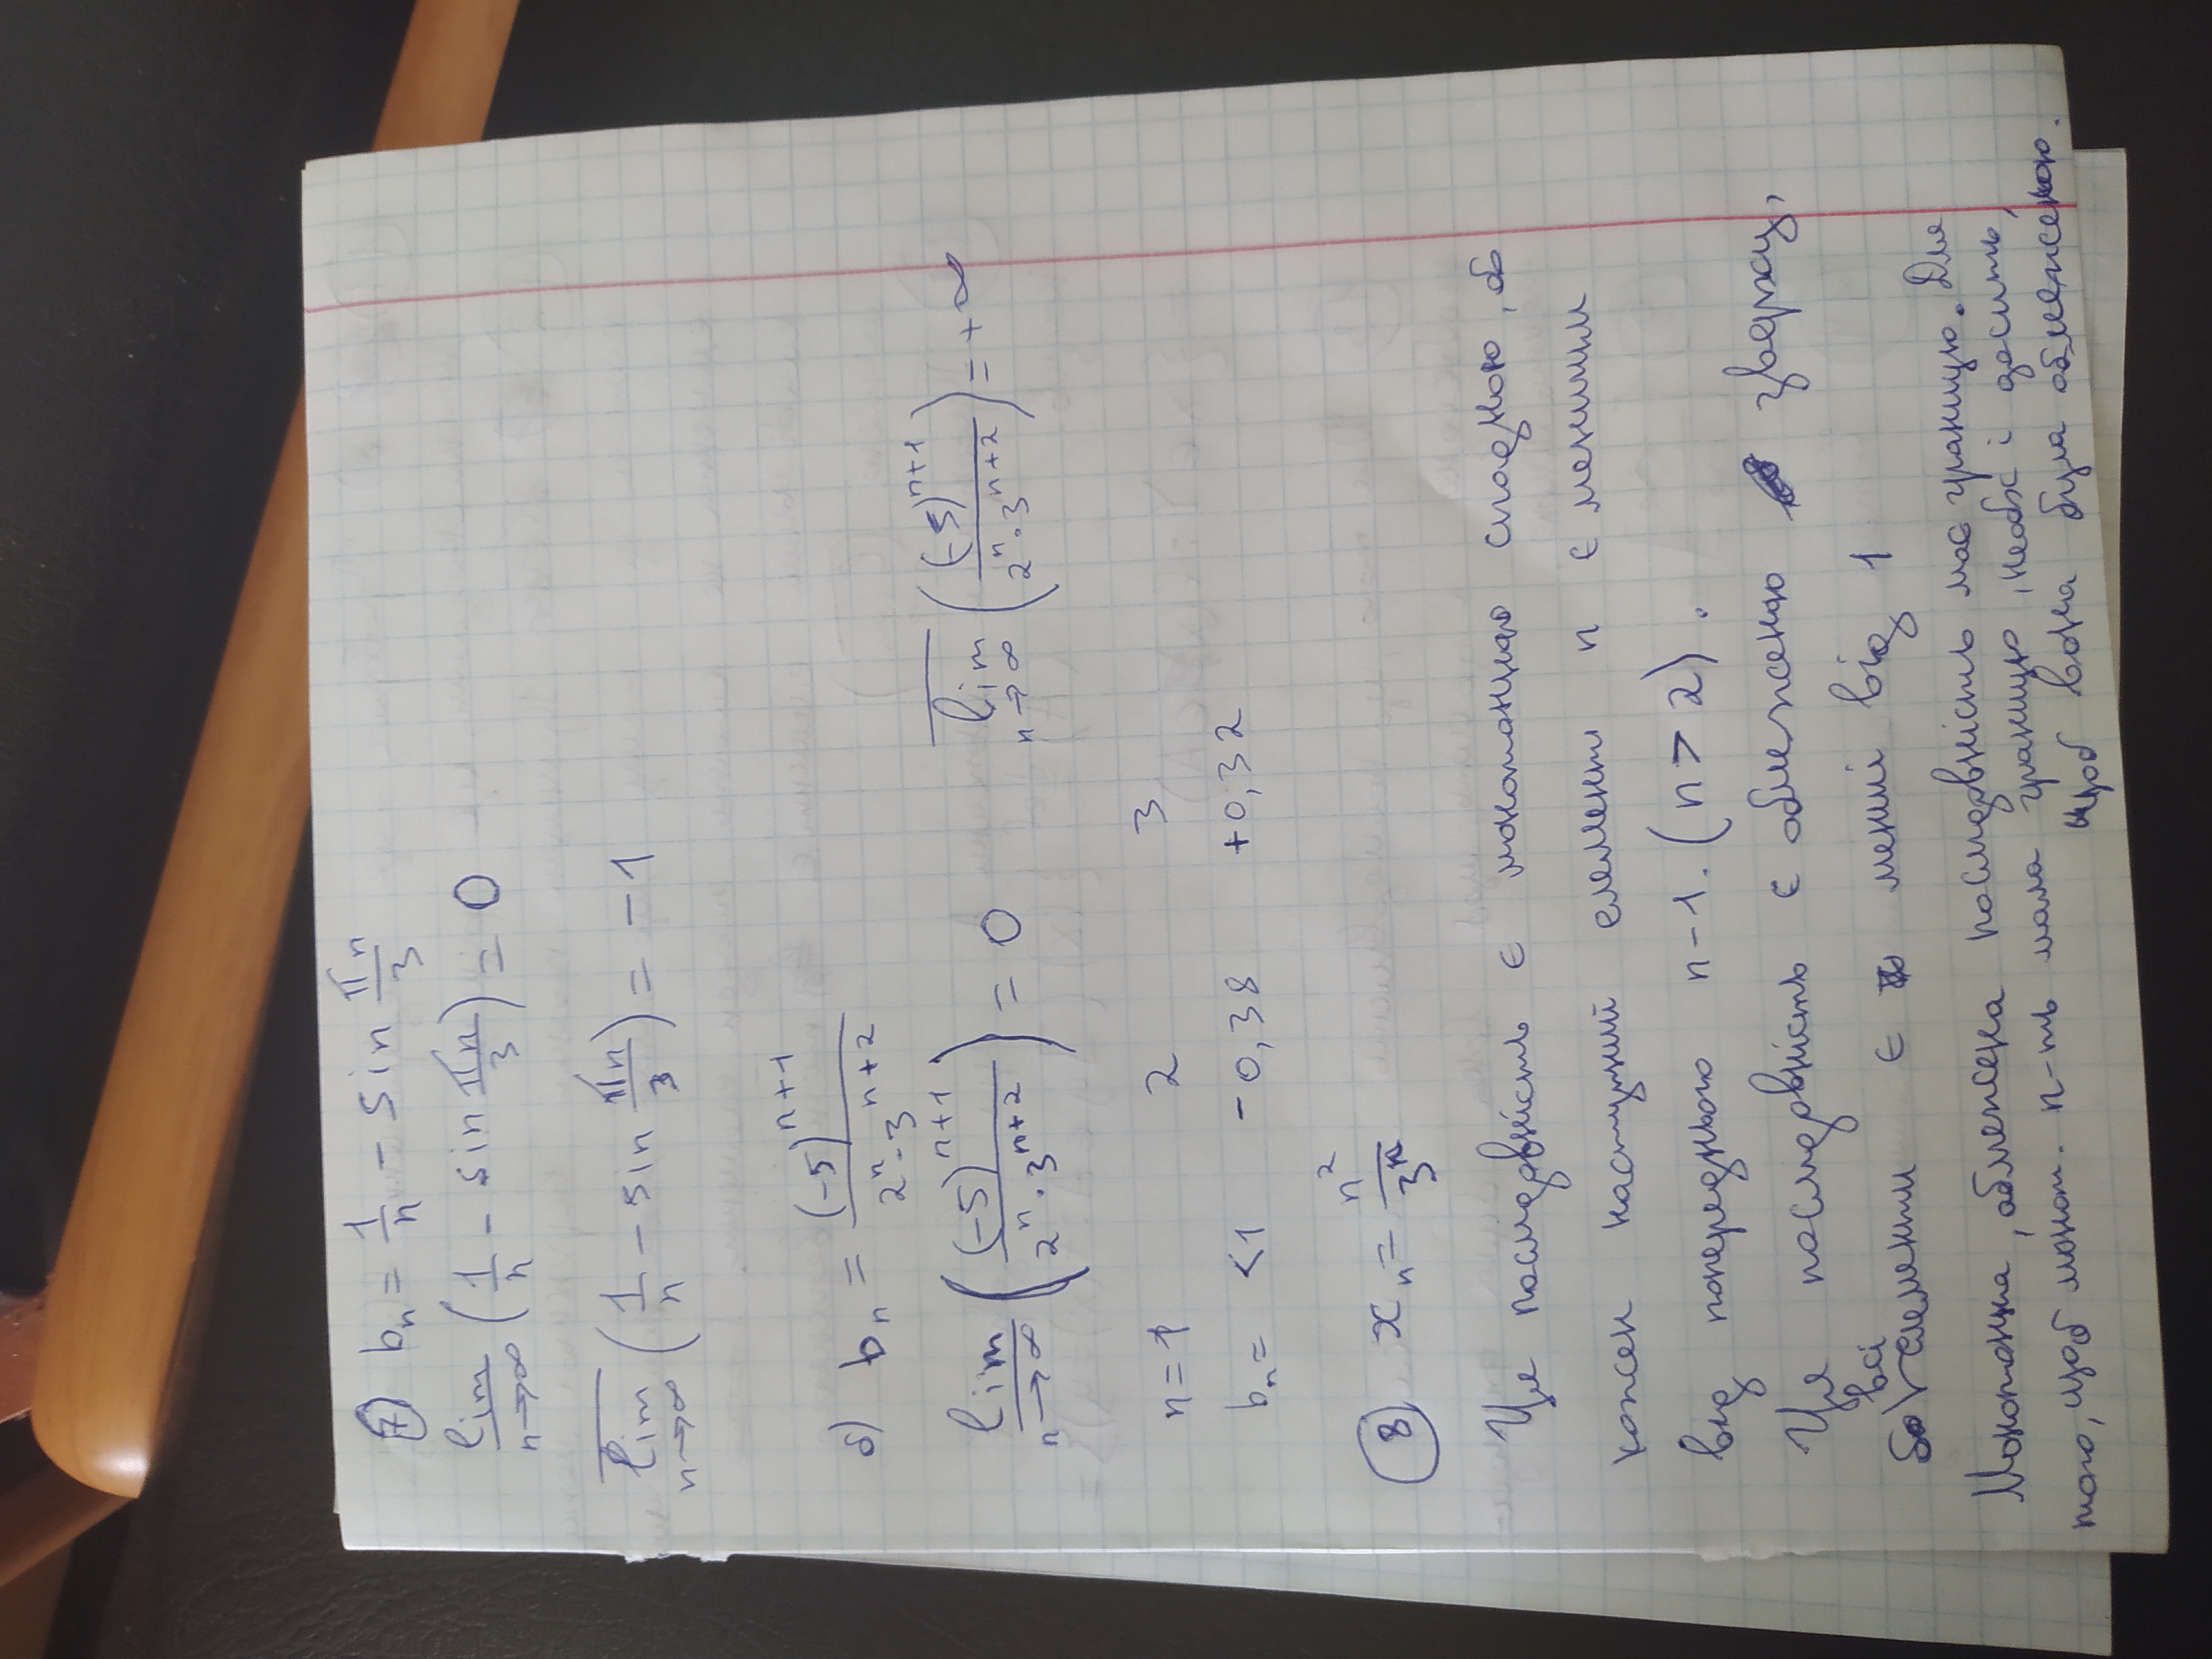 7) bₙ = 1/n - sin πn/3
lim n→∞ (1/n - sin πn/3) = 0
lim n→∞ (1/n - sin πn/3) = -1
б) bₙ = (-5)^(n+1) / 2^n · 3^(n+2)
lim n→∞ ((-5)^(n+1) / 2^n · 3^(n+2)) = 0 lim n→∞ ((-5)^(n+1) / 2^n · 3^(n+2)) = +∞
n = 1 2 3
bₙ = <1 -0,38 +0,32
8 xₙ = n² / 3ⁿ
Ця послідовність є монотонною спадною, бо
кожен наступний елемент n є меншим
від попереднього n-1. (n > 2).
Ця послідовність є обмеженою зверху,
бо всі елементи є менші від 1
Монотонна, обмежена послідовність має границю. Для
того, щоб монот. п-ть мала границю, необх і досить,
щоб вона була обмеженою.